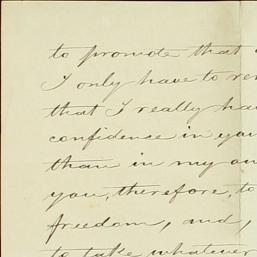 to promote that
I only have to
that I really
confidence in
than in my
you, therefore, to
freedom, and,
to take whatever